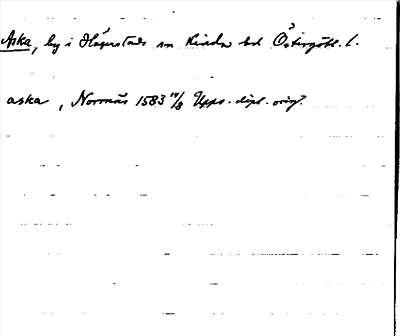 Aska, by i Hägerstads sn Kinda hd Östergötl. l.
aska, Norrnäs 1583 14/8 Upps. dipl. orig.